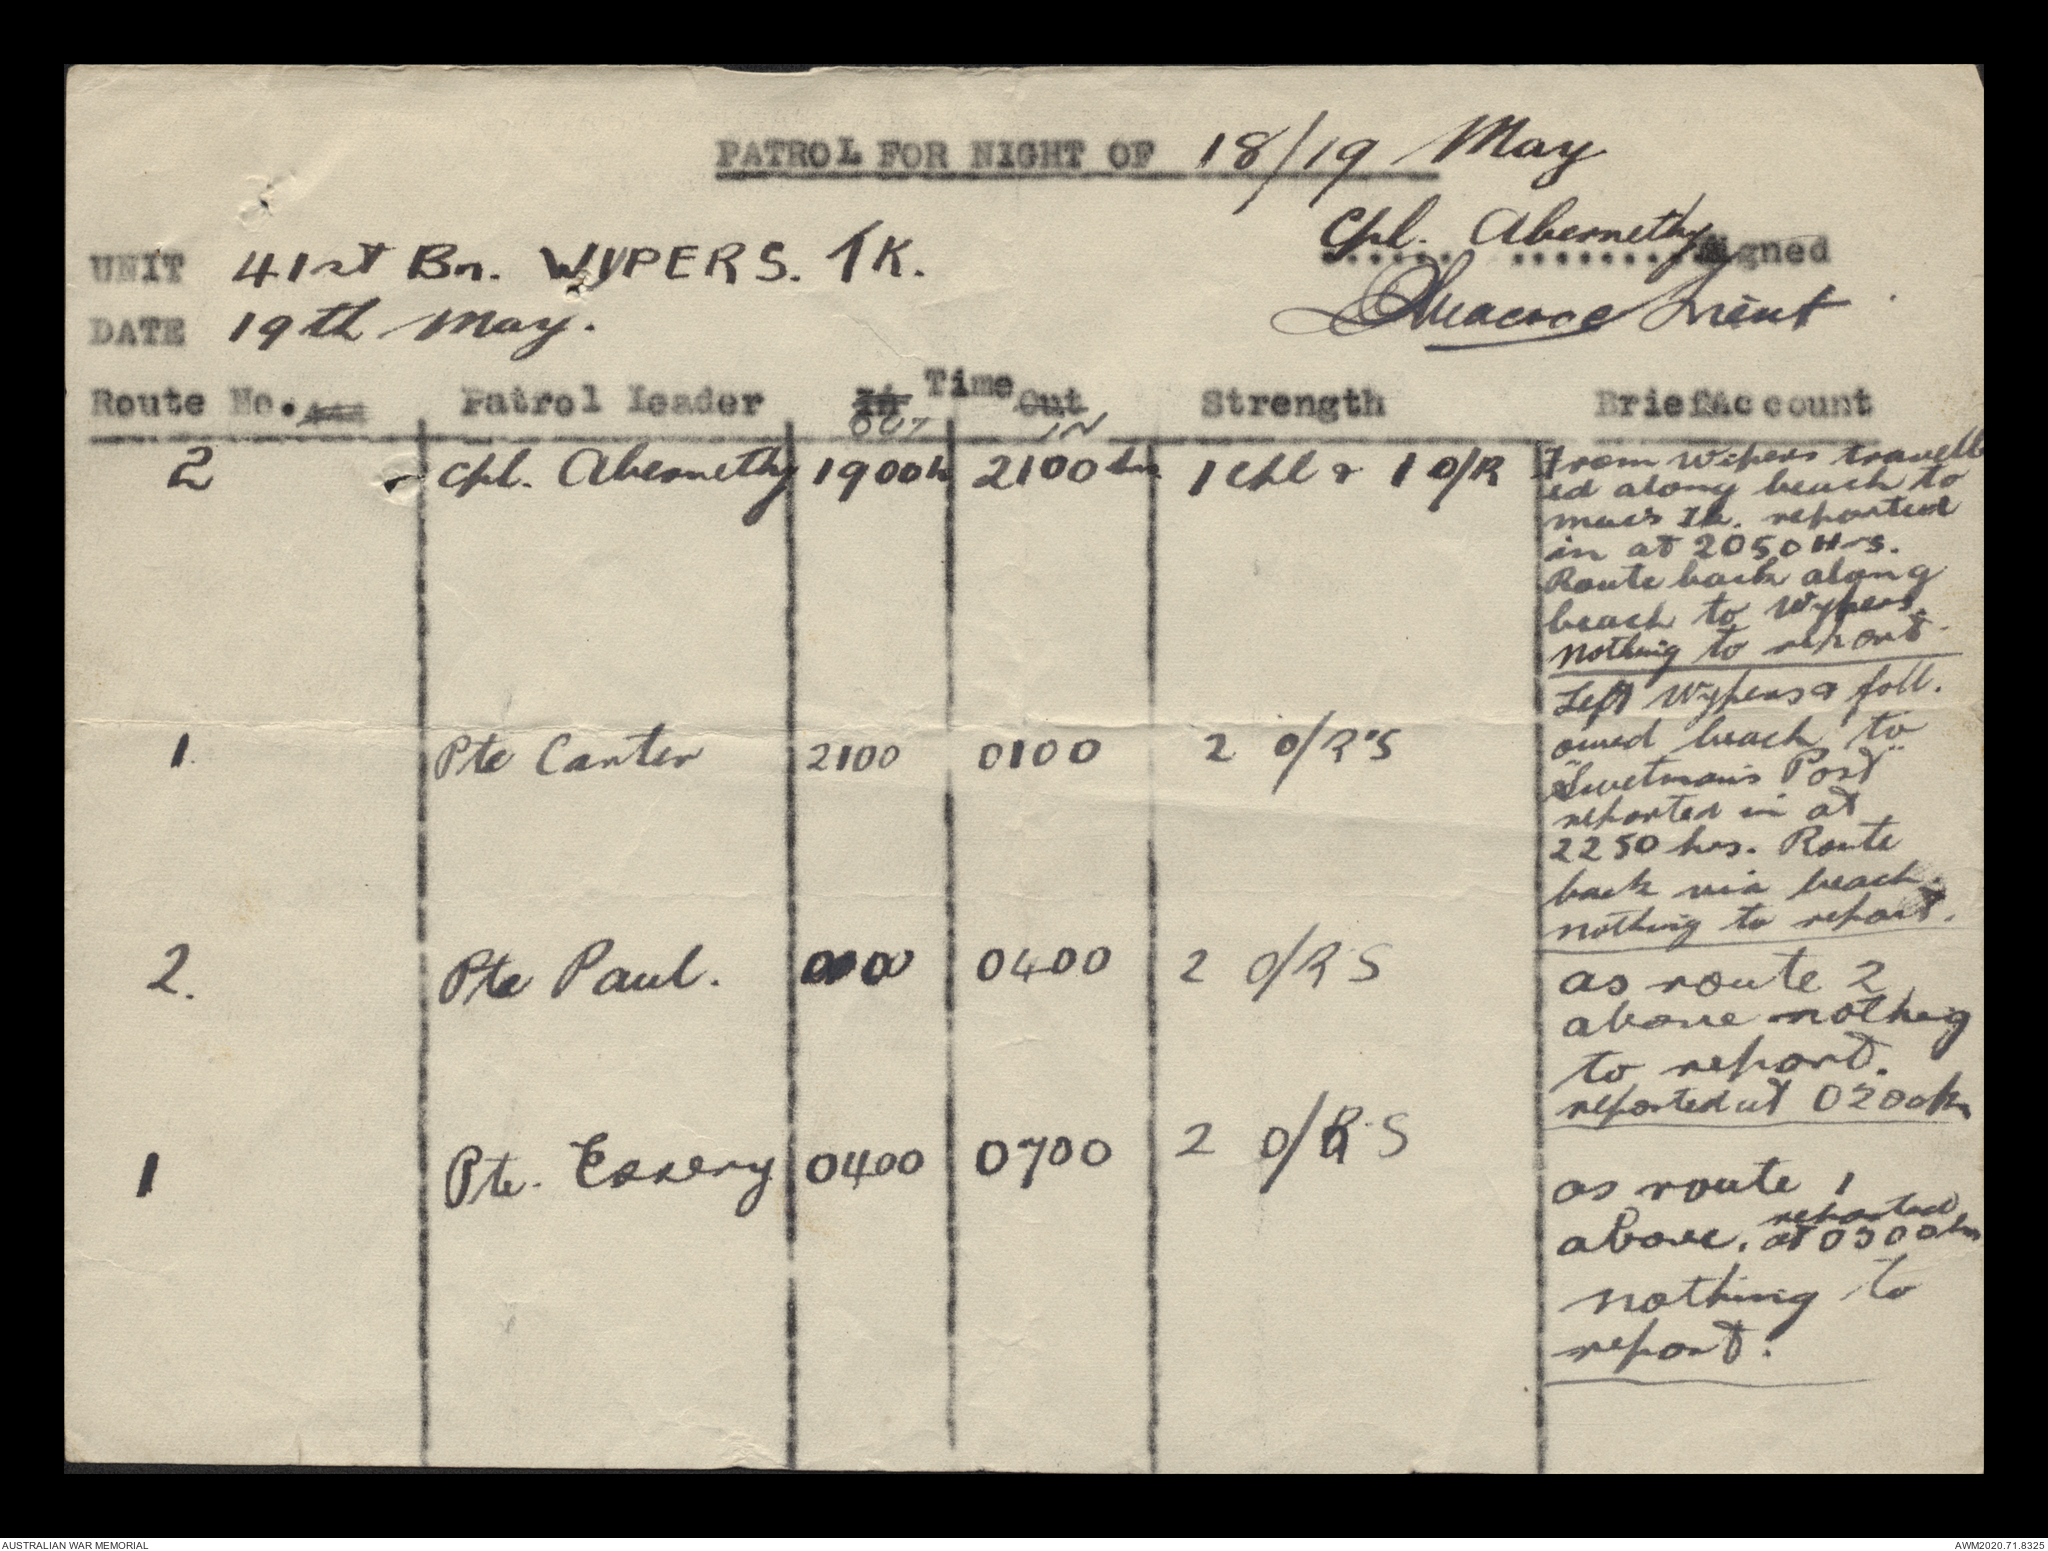 PATROL FOR NIGHT OF 18/19 May
Cpl. Abernethy
signed
UNIT 41st Bn. WYPERS. TK.
Lieut
DATE 19th May.
Route No. Patrol Leader In Time Out Strength Brief Account
OUT IN
2 Cpl. Abernethy 1900h 2100hrs 1 Cpl & 1 O/R
From Wipers travell
ed along beach to
Mac's Tk. reported
in at 2050 Hrs.
Route back along
beach to Wypers.
Nothing to report.
1. Pte Canter 2100 0100 2 O/R'S
Left Wypers & foll.
owed beach to
"Swetman's Post"
reported in at
2250 hrs. Route
back via beach.
nothing to report.
2. Pte Paul. 0400 2 O/R'S
as route 2
above nothing
to report.
reported at 0200h
1 Pte. Essery 0400 0700 2 O/R'S
as route 1
above. reported
at 0500hrs
nothing to
report.
AUSTRALIAN WAR MEMORIAL
AWM2020.71.8325